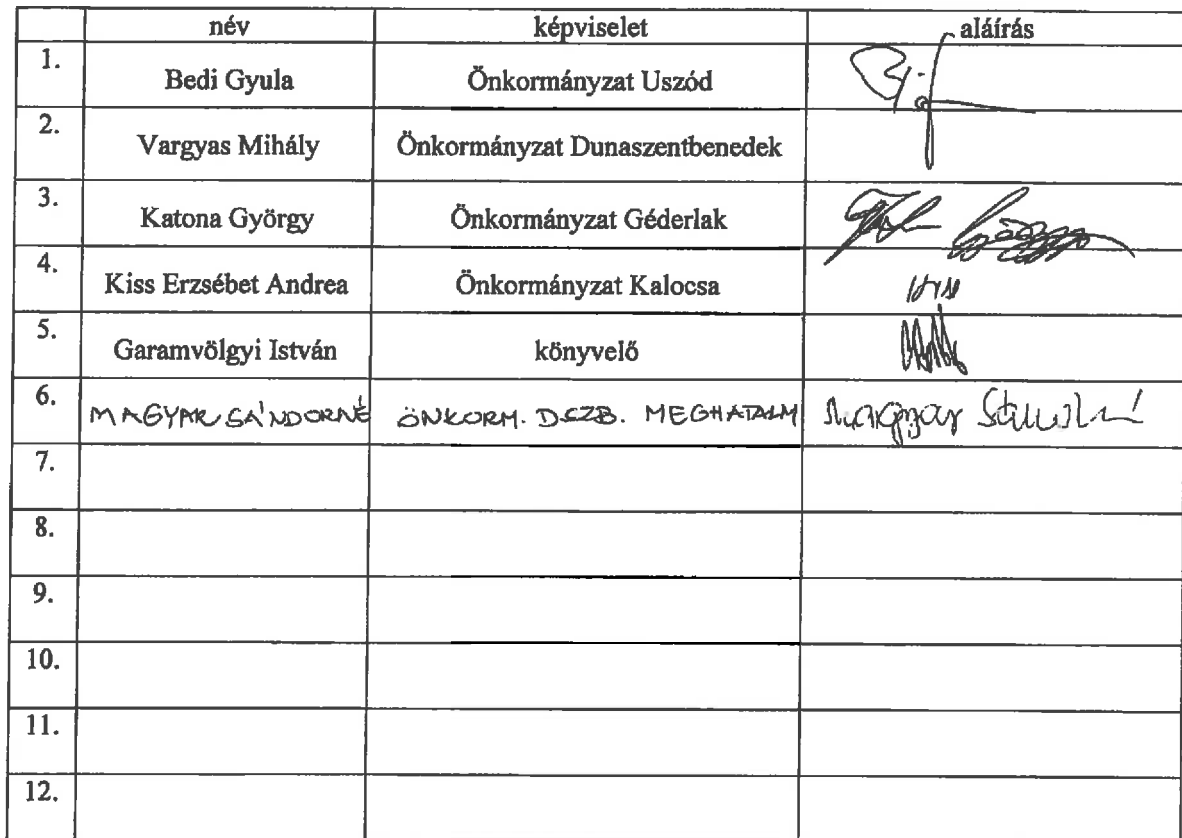 név képviselet aláírás
1. Bedi Gyula Önkormányzat Uszód
2. Vargyas Mihály Önkormányzat Dunaszentbenedek
3. Katona György Önkormányzat Géderlak
4. Kiss Erzsébet Andrea Önkormányzat Kalocsa
5. Garamvölgyi István könyvelő
6. MAGYAR SÁNDORNÉ ÖNKORM. D.SZB. MEGHATALM Magyar Sándorné
7.
8.
9.
10.
11.
12.